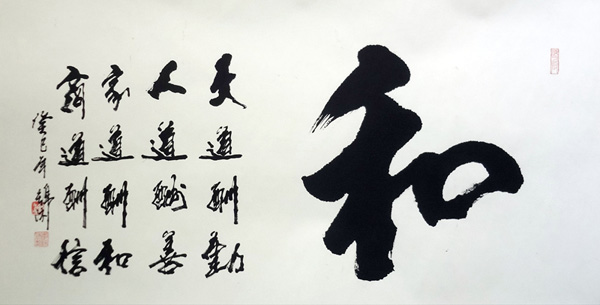 和
天道酬勤
人道酬善
家道酬和
商道酬
癸巳年